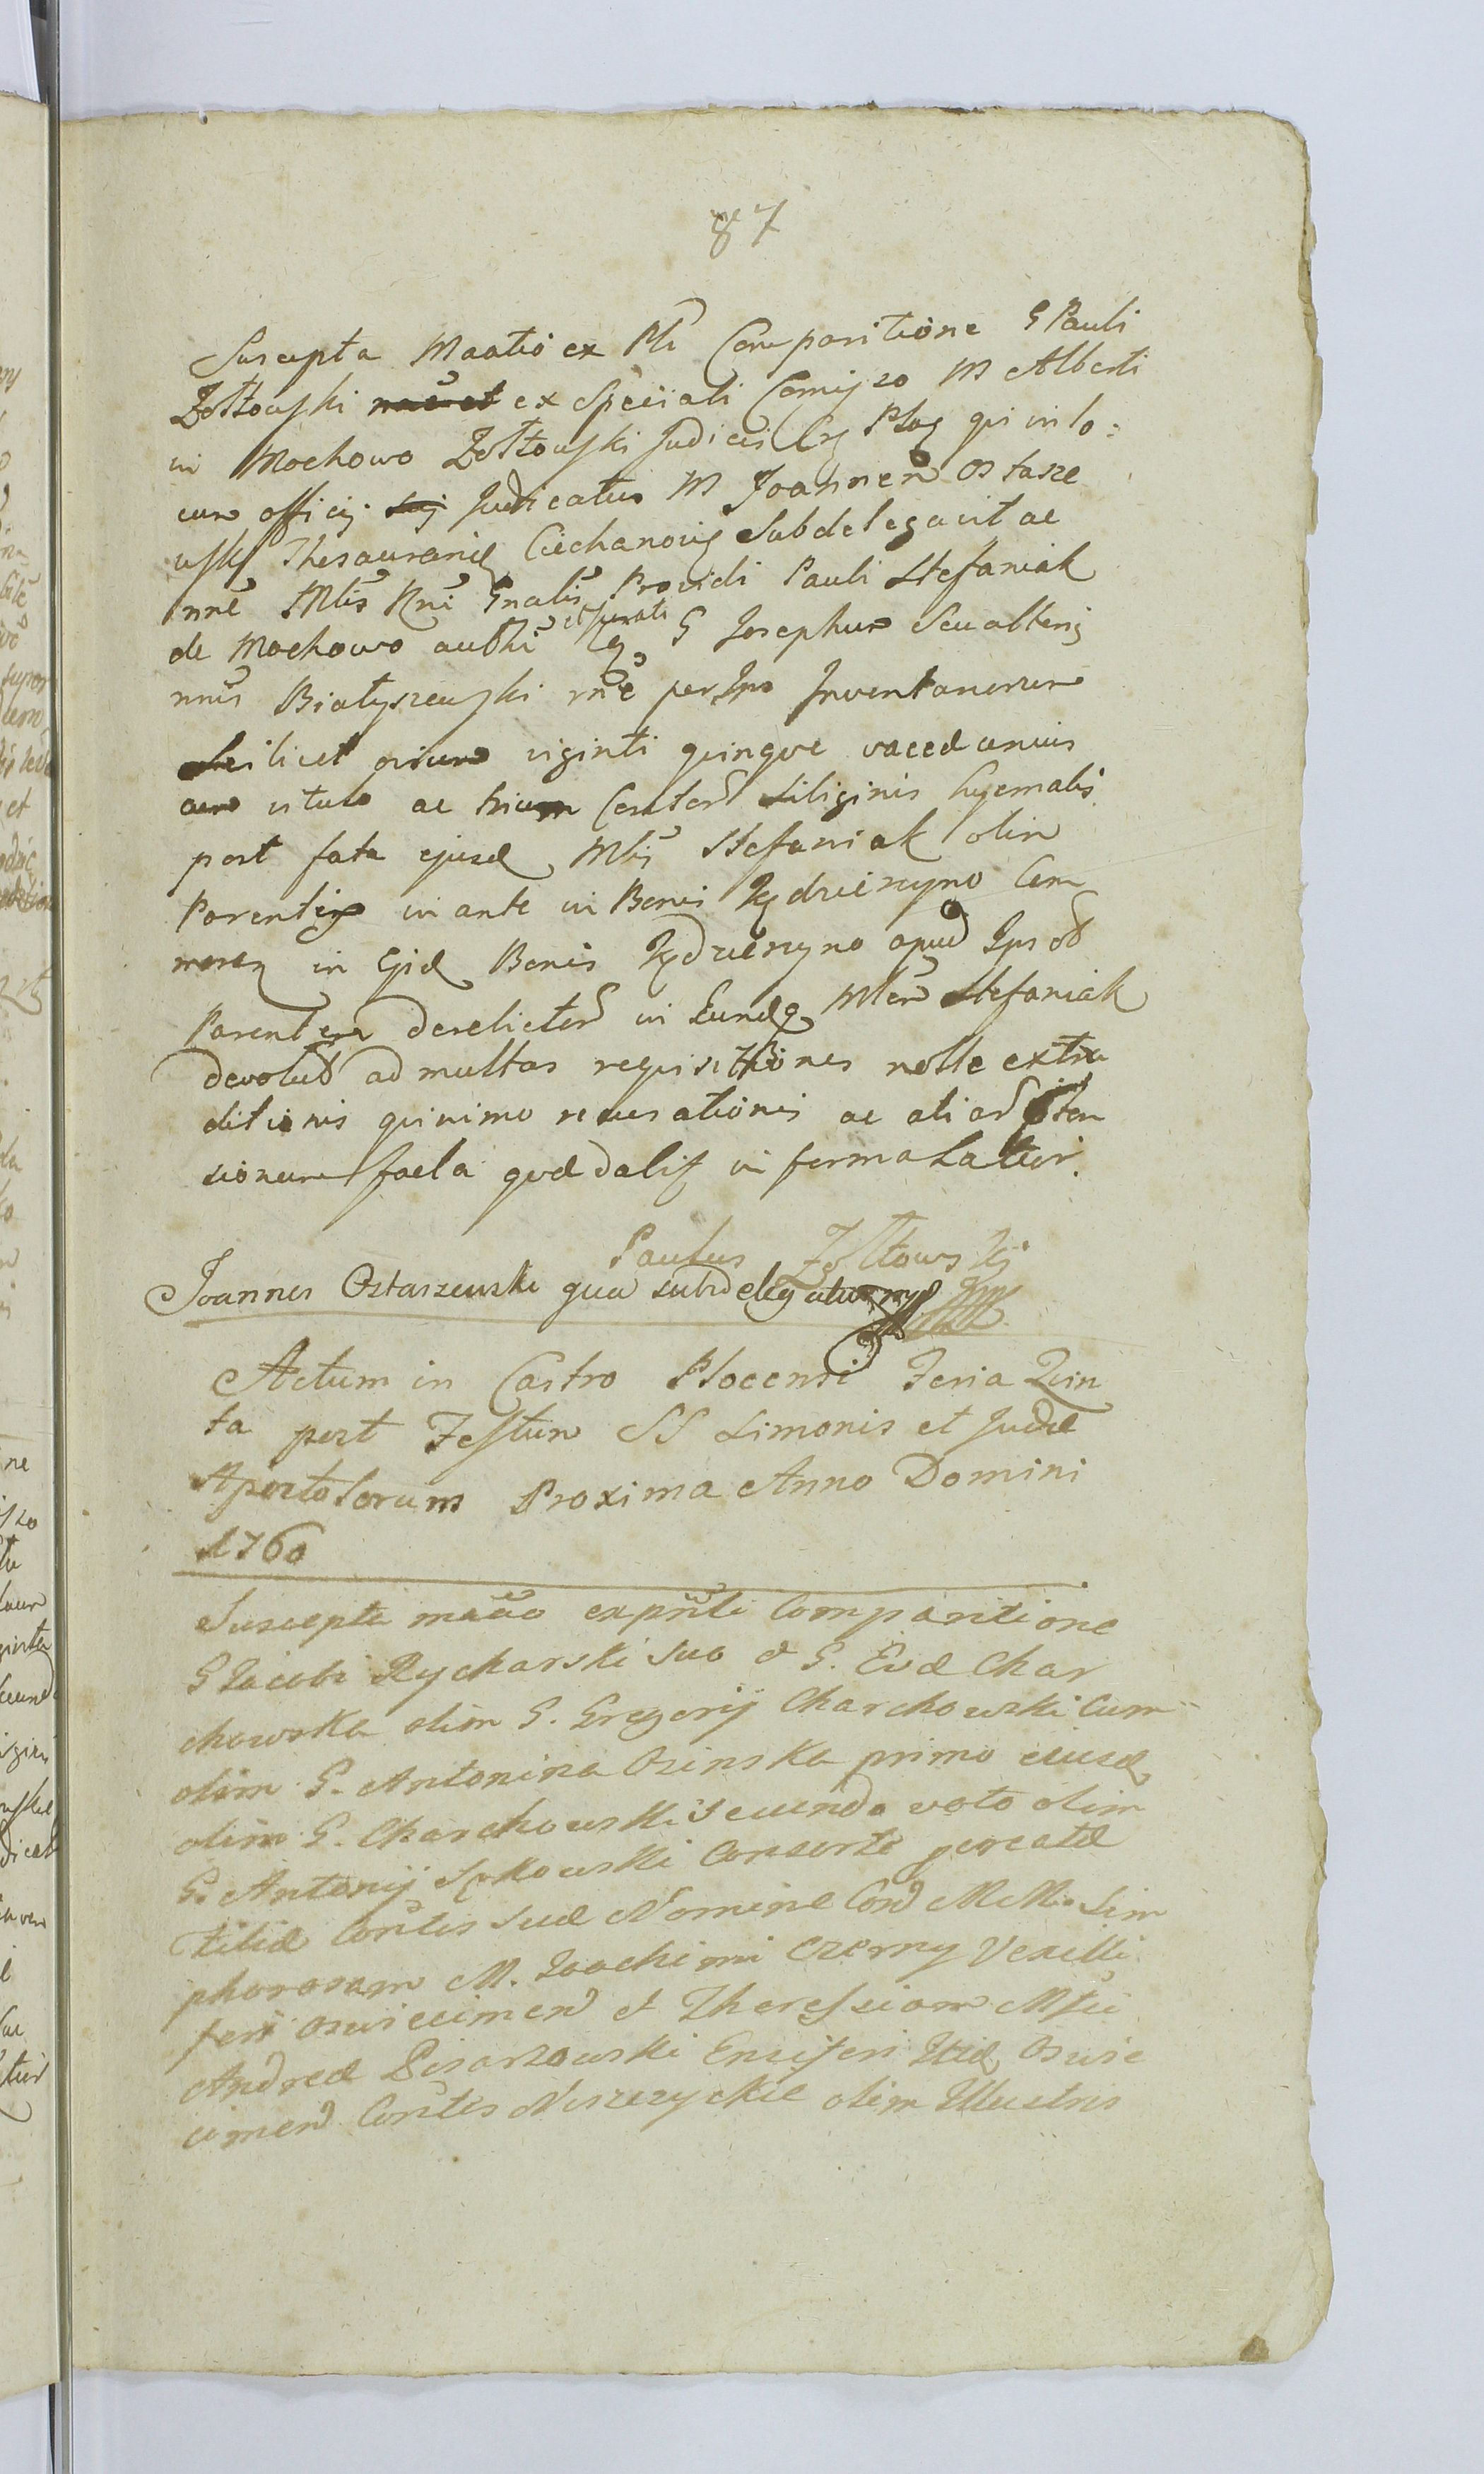 87
Suscepta Maatio ex Pti Comparitione G Pauli
Zołtowski ex Speciali Comisso M Alberti
in Mochowo Zołtowski Judicis Plog qui in lo:
cum officij Judicatus M Joannem Ostasze
wski Thesaurarie Ciechanovig Subdelegavit ac
nne Mtis Rni Gnalis Providi Pauli Stefaniak
de Mochowo authi et Jurati G Josephum Seu alterig
nnis Białyszewski rne per Ipso Inventariorum
Scilicet ovium viginti quinque vacced unius
cum vitulo ac trium Siliginis hyemalis
post fata ejusd Mtis Stefaniak olim
Parentis in ante in Bonis Kędzierzyno Com
moran in Ejsd Bonis Kędzierzyno apud Ipsos
Parentem derelictor in Eundq Mter Stefaniak
devolut ad multas requisitiones nolle extra
ditionis quinimo recusationis ac aliar
sionum facta qvd dalis in forma Latior.
Paulus Zołtowski
Joannes Ostaszewski qua subdelegatus mpp
Actum in Castro Plocensi Feria Quin
ta post Festum SS Simonis et Judæ
Apostolorum Proxima Anno Domini
1760
Suscepta maāo ex pnti Comparitione
G Jacobi Rycharski suo et G. Evæ Char
chowska olim G. Gregorij Charchowski Cum
olim G. Antonina Osinska primo ejusd
olim G. Charchowski secundo voto olim
G. Antonij Consorte
Filiæ Contis suæ Nomine Con MM. Sim
phorosam M. Joachimi Czerny Vexilli
feri oswiecimen et Theressiam Msci
Andreæ Pisarzowski Ensiferi Oswie
cimen Contis Niszczyckie olim Illustris